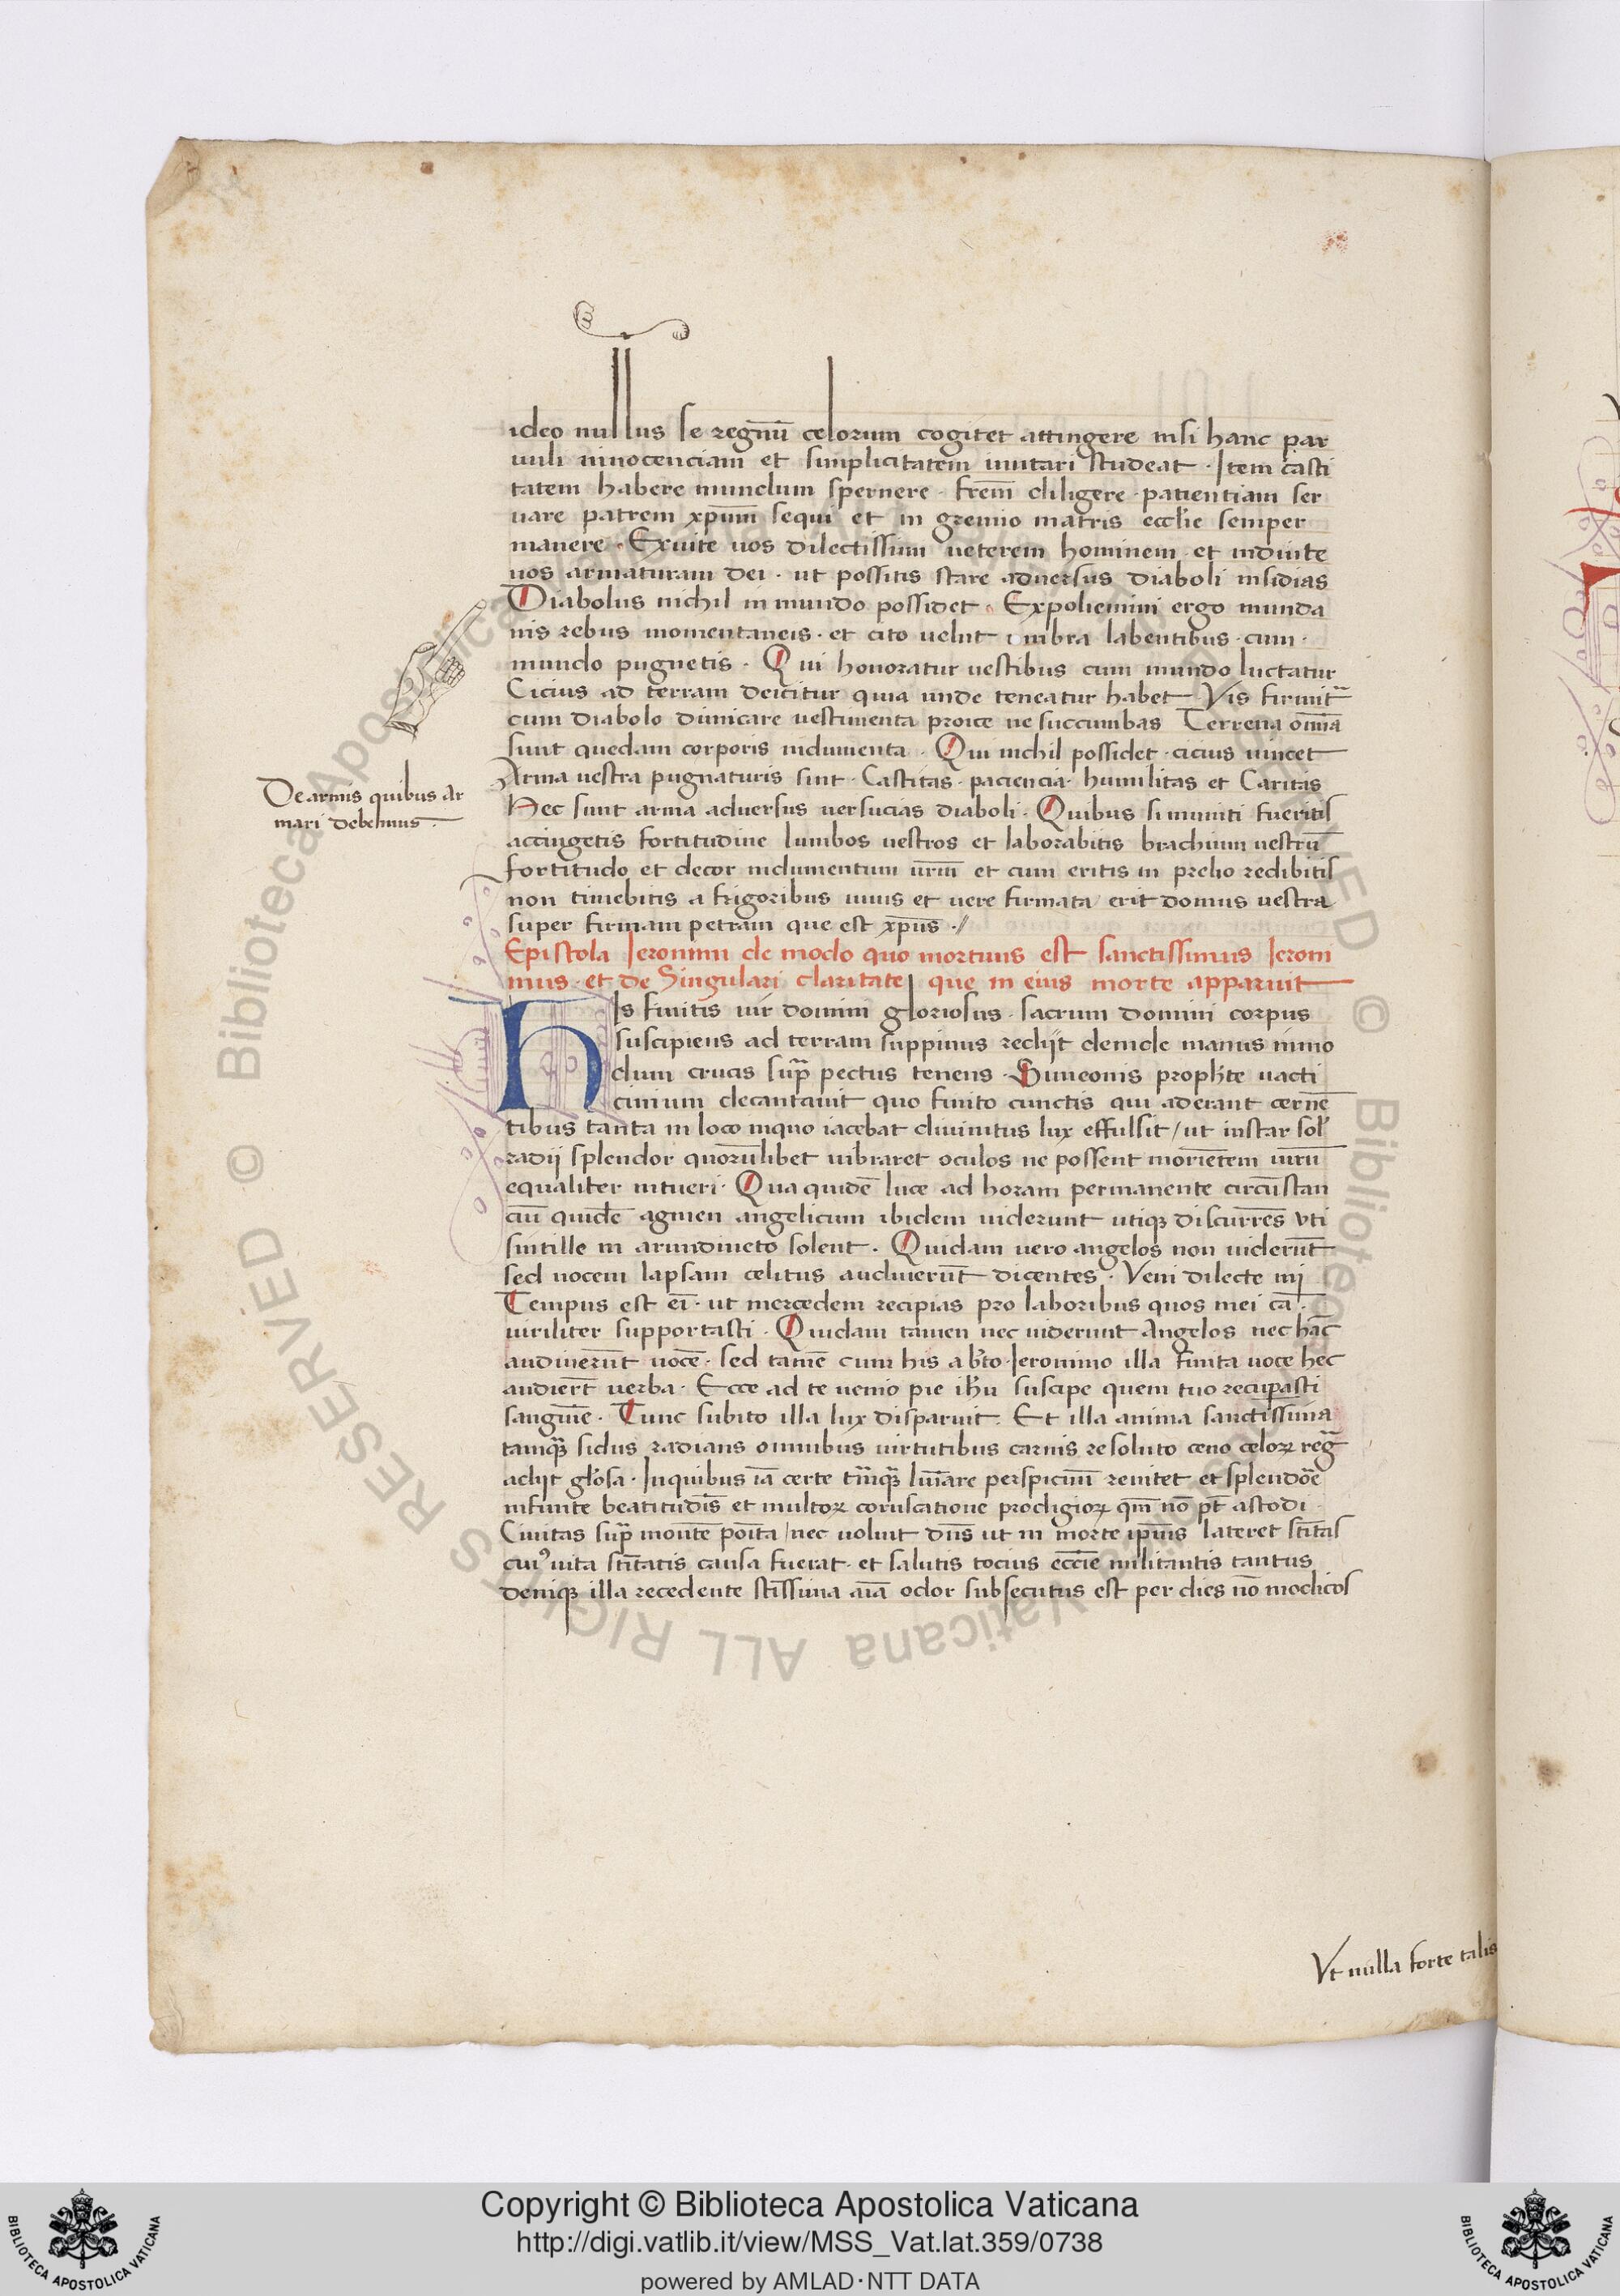 ideo nullus se regnū celorum cogitet attingere nisi hanc par
uuli innocenciam et simplicitatem imitari studeat · Item casti
tatem habere mundum spernere · frēm diligere · patientiam ser
uare patrem xp̄um sequi et in gremio matris eccl̄ie semper
manere · Exuite uos dilectissimi ueterem hominem · et induite
uos armaturam dei · ut possitis stare aduersus diaboli insidias
Diabolus nichil in mundo possidet · Expoliemini ergo munda
nis rebus momentaneis · et cito uelut umbra labentibus · cum ·
mundo pugnetis · Qui honoratur uestibus cum mundo luctatur
Cicius ad terram deicitur quia unde teneatur habet Vis firmit̄
cum diabolo dimicare uestimenta proice ne succumbas Terrena om̄ia
sunt quedam corporis indumenta · Qui nichil possidet · cicius uincet
Arma uestra pugnaturis sint · Castitas · paciencia · humilitas et Caritas
De armis quibus ar
mari debemus ·
Hec sunt arma aduersus uersucias diaboli · Quibus si muniti fueritis
accingetis fortitudine lumbos uestros et laborabitis brachium uestrū
fortitudo et decor indumentum ur̄m et cum eritis in prelio redibitis
non timebitis a frigoribus niuis et uere firmata erit domus uestra
super firmam petram que est xp̄us ·/
Epistola Ieronimi de modo quo mortuus est sanctissimus Ieroni
mus · et de Singulari claritate que in eius morte apparuit
His finitis uir domini gloriosus · sacrum domini corpus
suscipiens ad terram suppinus redijt deinde manus inmo
dum crucis sup̄ pectus tenens · Simeonis proph̄te uacti
cinium decantauit quo finito cunctis qui aderant cernē
tibus tanta in loco inquo iacebat diuinitus lux effulsit / ut instar sol̄
radij splendor quorūlibet uibraret oculos ne possent moriētem uirū
equaliter intueri · Qua quidē luce ad horam permanente circūstan
ciū quidē agmen angelicum ibidem uiderunt utiqꝫ discurrēs vti
sintille in arundineto solent · Quidam uero angelos non uiderūt
sed uocem lapsam celitus audiuerūt dicentes · Veni dilecte mi
Tempus est eī · ut mercedem recipias pro laboribus quos mei cā ·
uiriliter supportasti · Quidam tamen nec uiderunt Angelos nec hāc
audiuerūt uocē · sed tamē cum his a b̄to Ieronimo illa finita uoce hec
audierīt uerba · Ecce ad te uenio pie ih̄u suscipe quem tuo recup̄asti
sanguīe · Tunc subito illa lux disparuit · Et illa anima sanctissima
tamqꝫ sidus radians omnibus uirtutibus carnis resoluto ceno celoꝝ reḡ
adijt gl̄osa · Inquibus iā certe tāmqꝫ lumīare perspicuū renitet et splendōe
infinite beatitudīs et multoꝝ coruscatione prodigioꝝ qm̄ nō pt̄ abscōdi
Ciuitas sup̄ montē poīta / nec uoluit dn̄s ut in morte ip̄ius lateret sc̄itas
cuiꝰ uita sc̄itatis causa fuerat · et salutis tocius ecc̄ie militantis tantus
deniqꝫ illa recedente sc̄issima aīa odor subsecutus est per dies nō modicos
Vt nulla forte talis